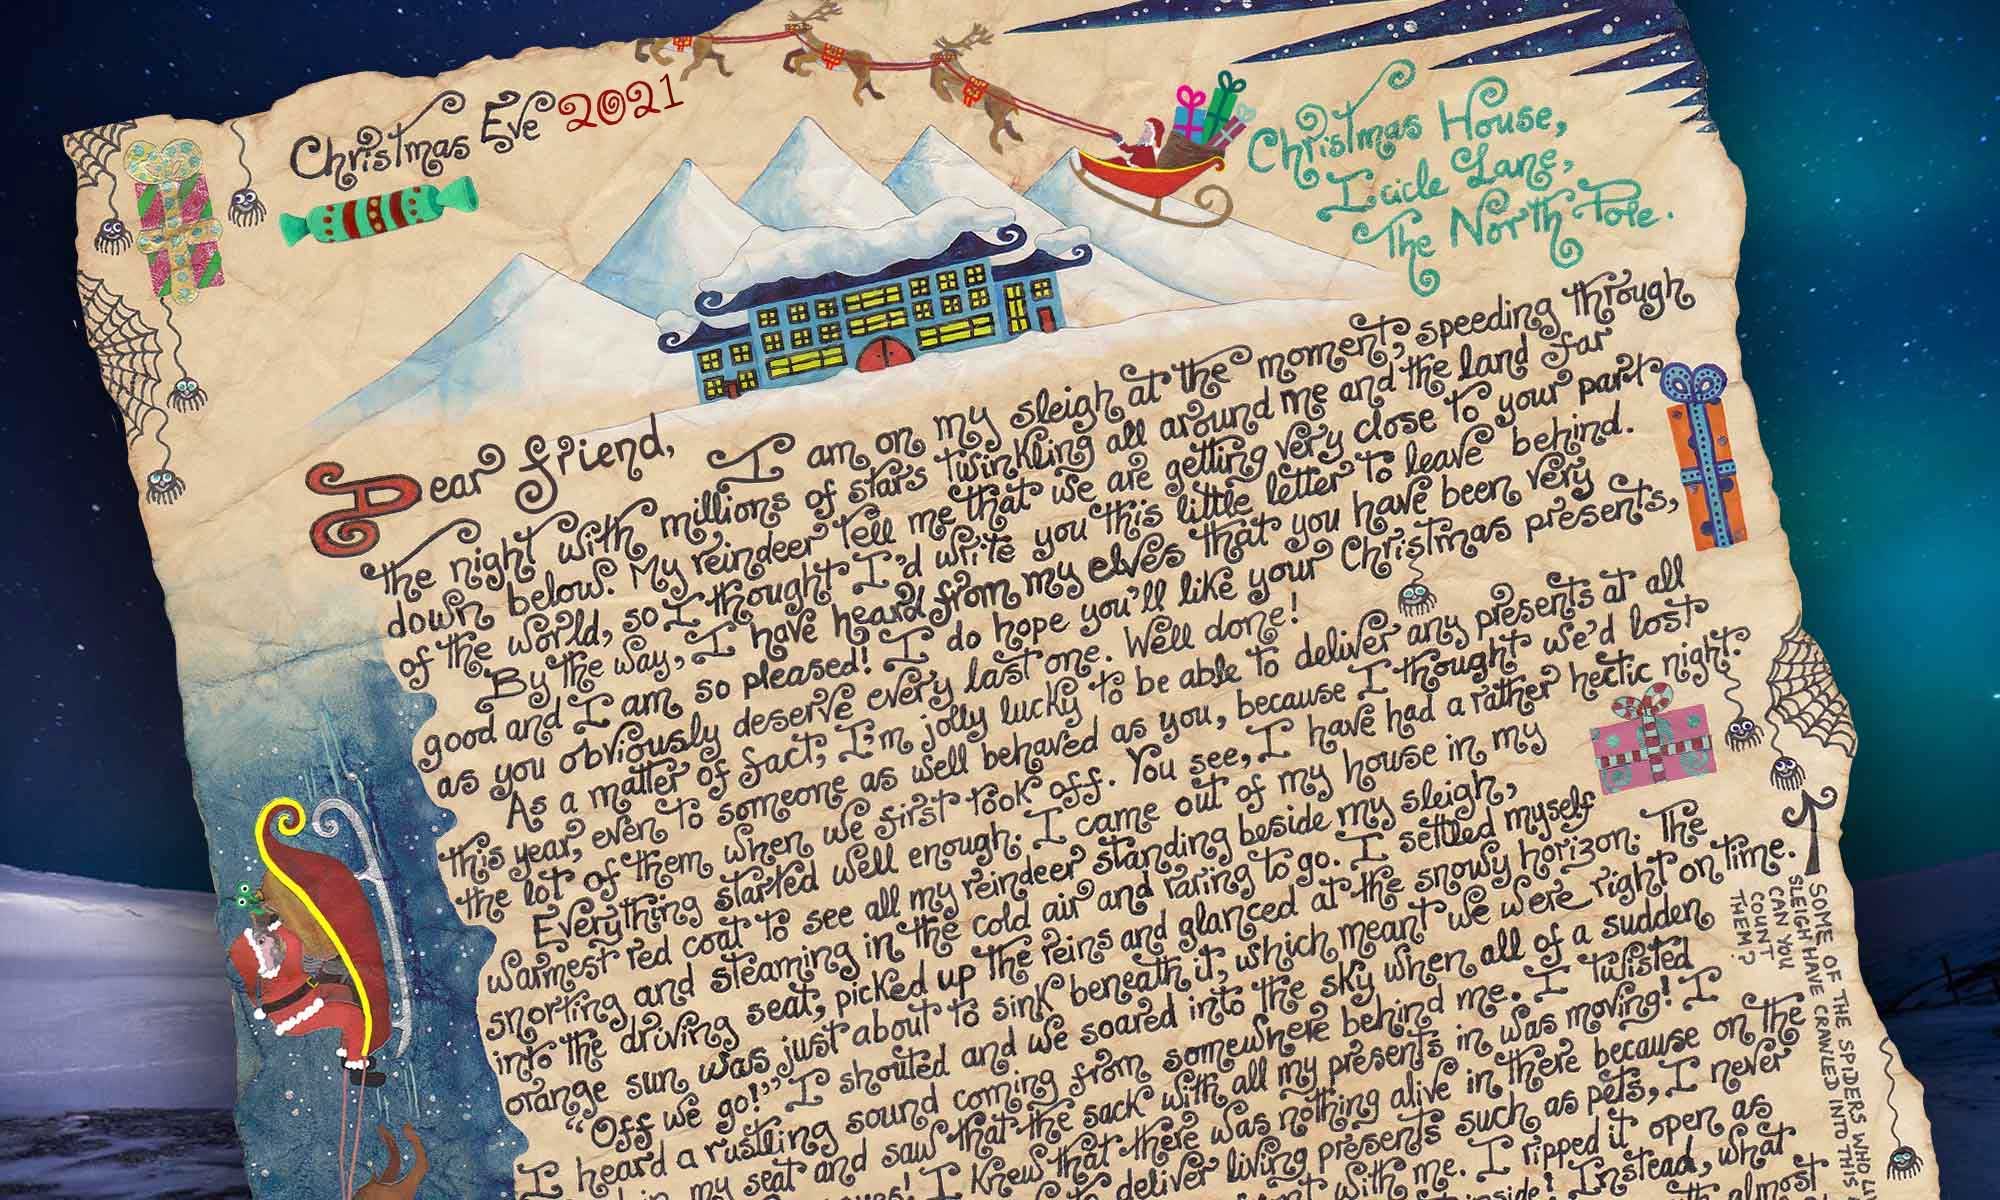 Christmas Eve 2021
Christmas House,
Icicle Lane,
The North Pole.
Dear friend, I am on my sleigh at the moment, speeding through
the night with millions of stars twinkling all around me and the land far
down below. My reindeer tell me that we are getting very close to your part
of the world, so I thought I'd write you this little letter to leave behind.
By the way, I have heard from my elves that you have been very
good and I am so pleased! I do hope you'll like your Christmas presents,
as you obviously deserve every last one. Well done!
As a matter of fact, I'm jolly lucky to be able to deliver any presents at all
this year, even to someone as well behaved as you, because I thought we'd lost
the lot of them when we first took off. You see, I have had a rather hectic night.
Everything started well enough. I came out of my house in my
warmest red coat to see all my reindeer standing beside my sleigh,
snorting and steaming in the cold air and raring to go. I settled myself
into the driving seat, picked up the reins and glanced at the snowy horizon. The
orange sun was just about to sink beneath it, which meant we were right on time.
“Off we go!” I shouted and we soared into the sky when all of a sudden
I heard a rustling sound coming from somewhere behind me. I twisted
in my seat and saw that the sack with all my presents in was moving! I
I knew that there was nothing alive in there because on the
to deliver living presents such as pets, I never
with me. I ripped it open as
inside! Instead, what
almost
SOME OF THE SPIDERS WHO
SLEIGH HAVE CRAWLED INTO THIS
CAN YOU
COUNT
THEM?